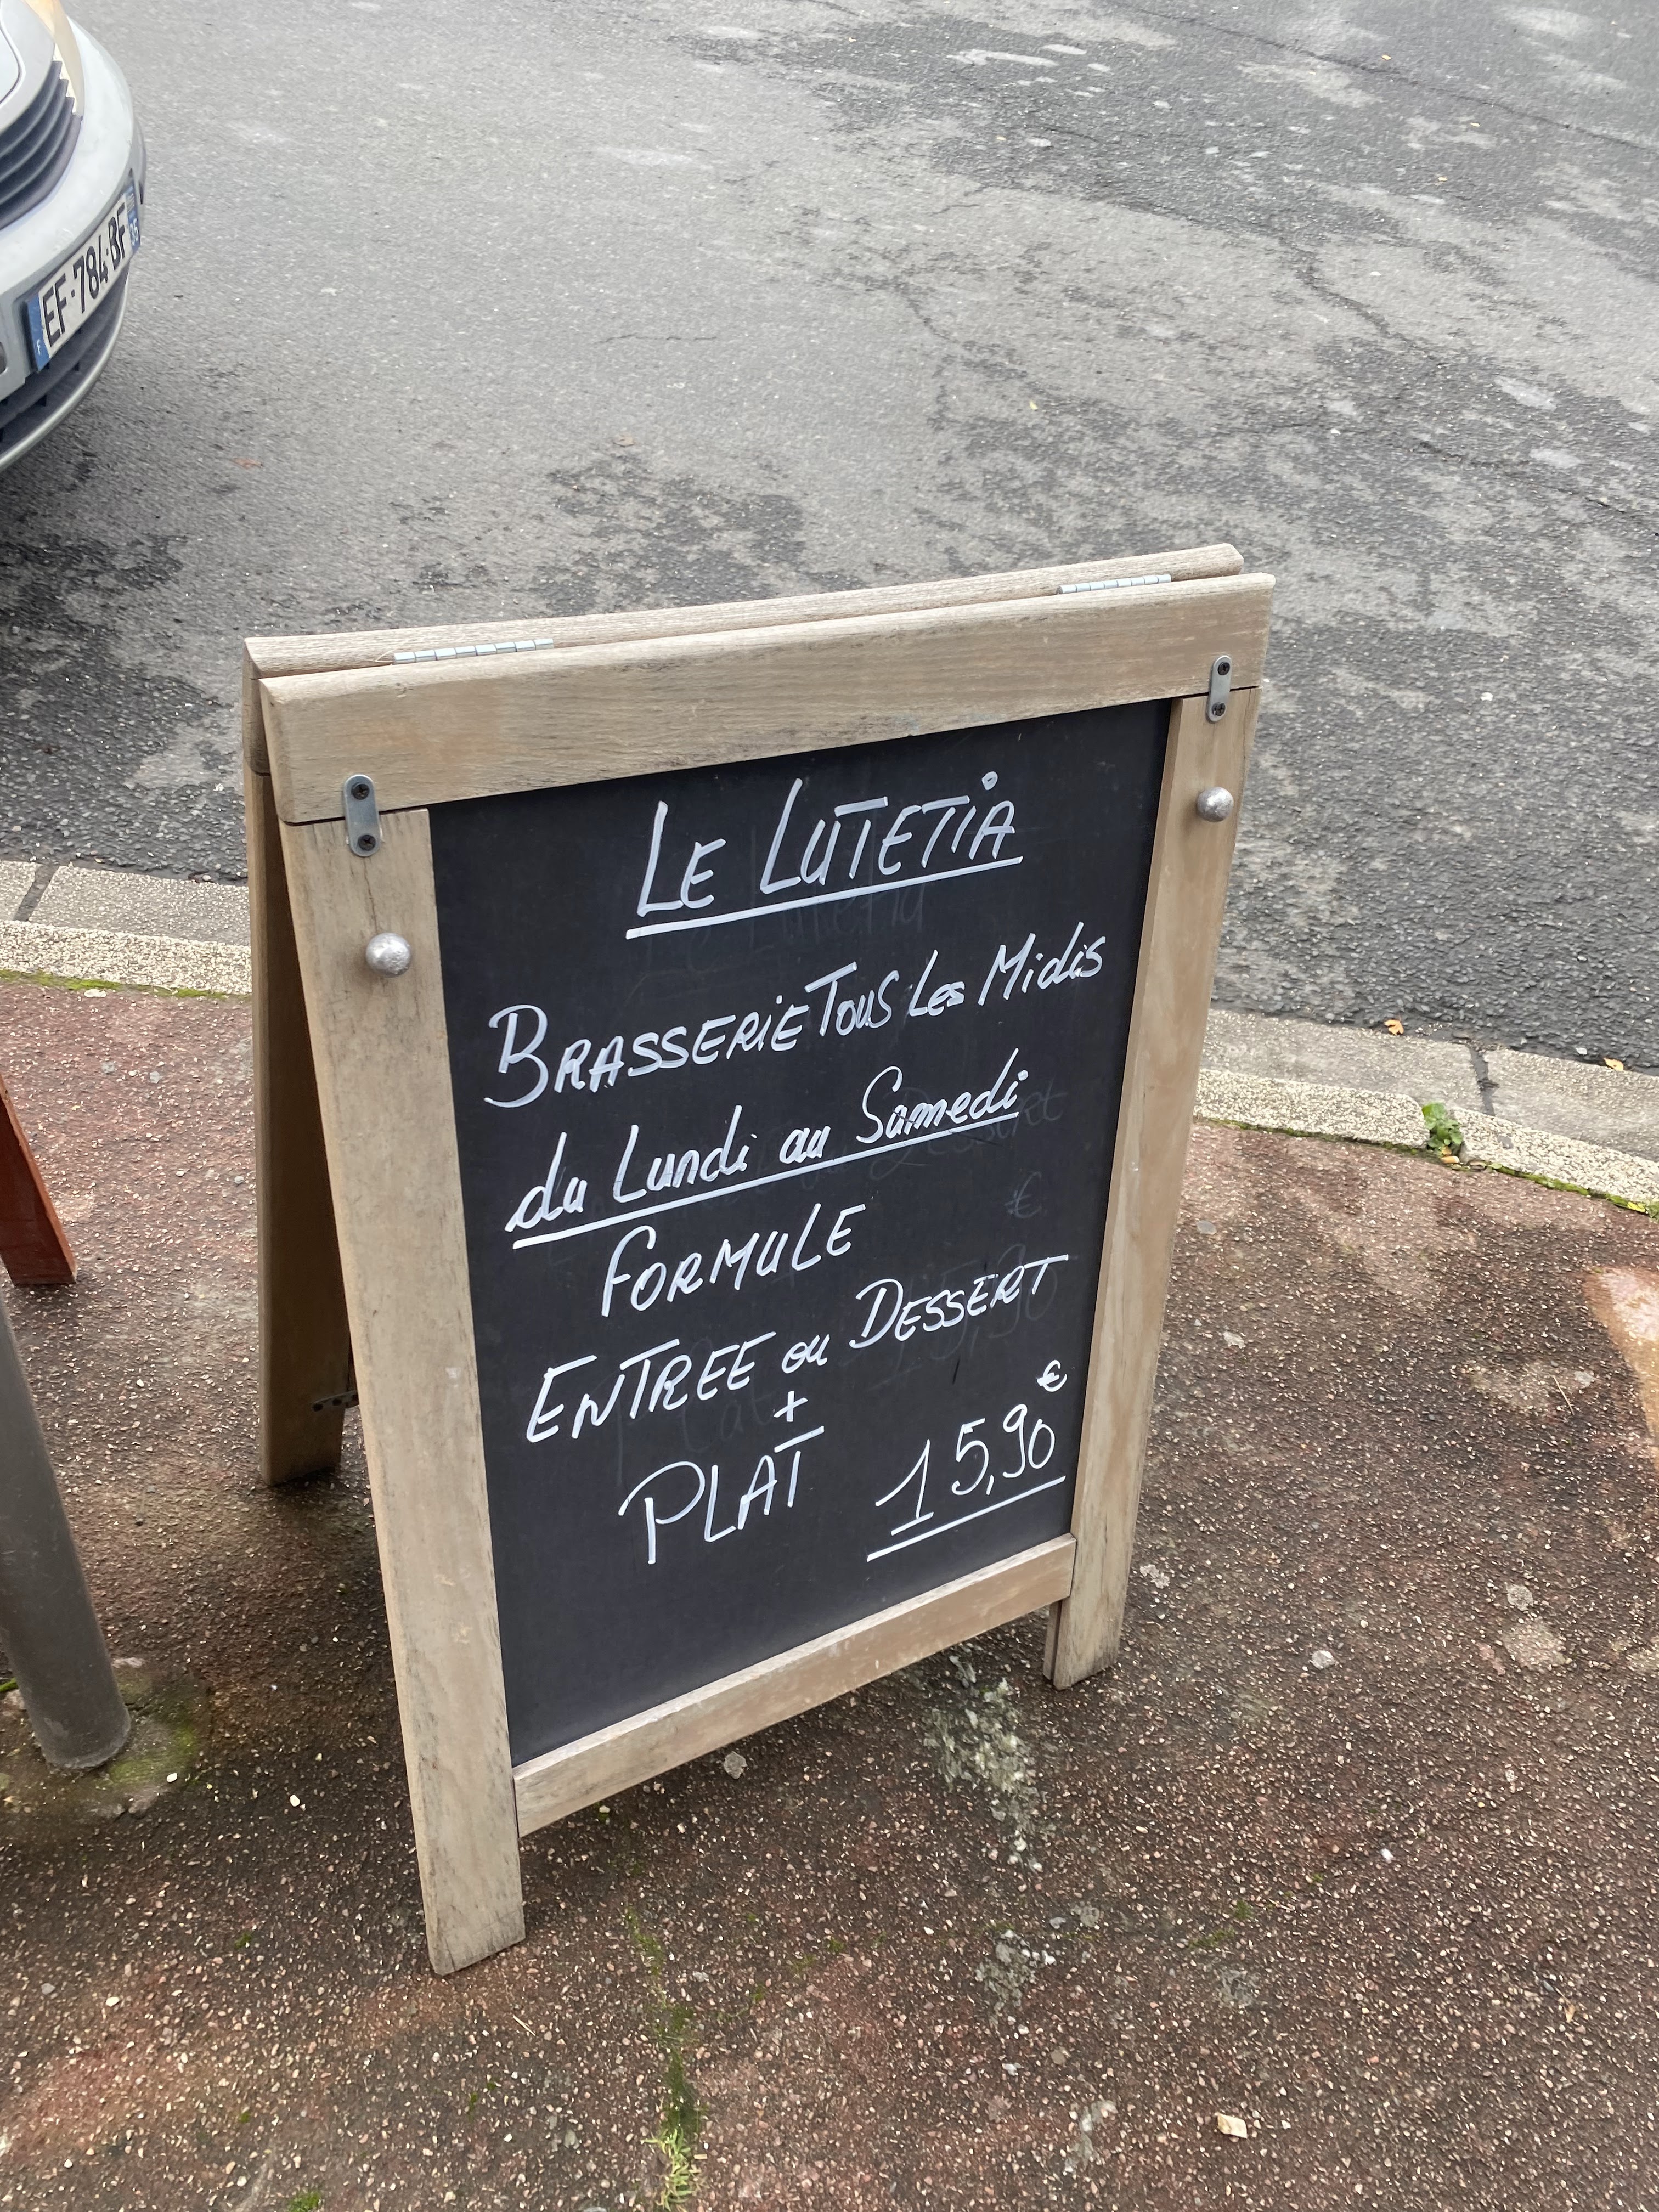 EF-784-BF
F
35
LE LUTETiA
BRASSERiE TOUS Les Midis
du Lundi au Samedi
FORMULE
ENTREE ou DESSERT
+
PLAT 15,90 €